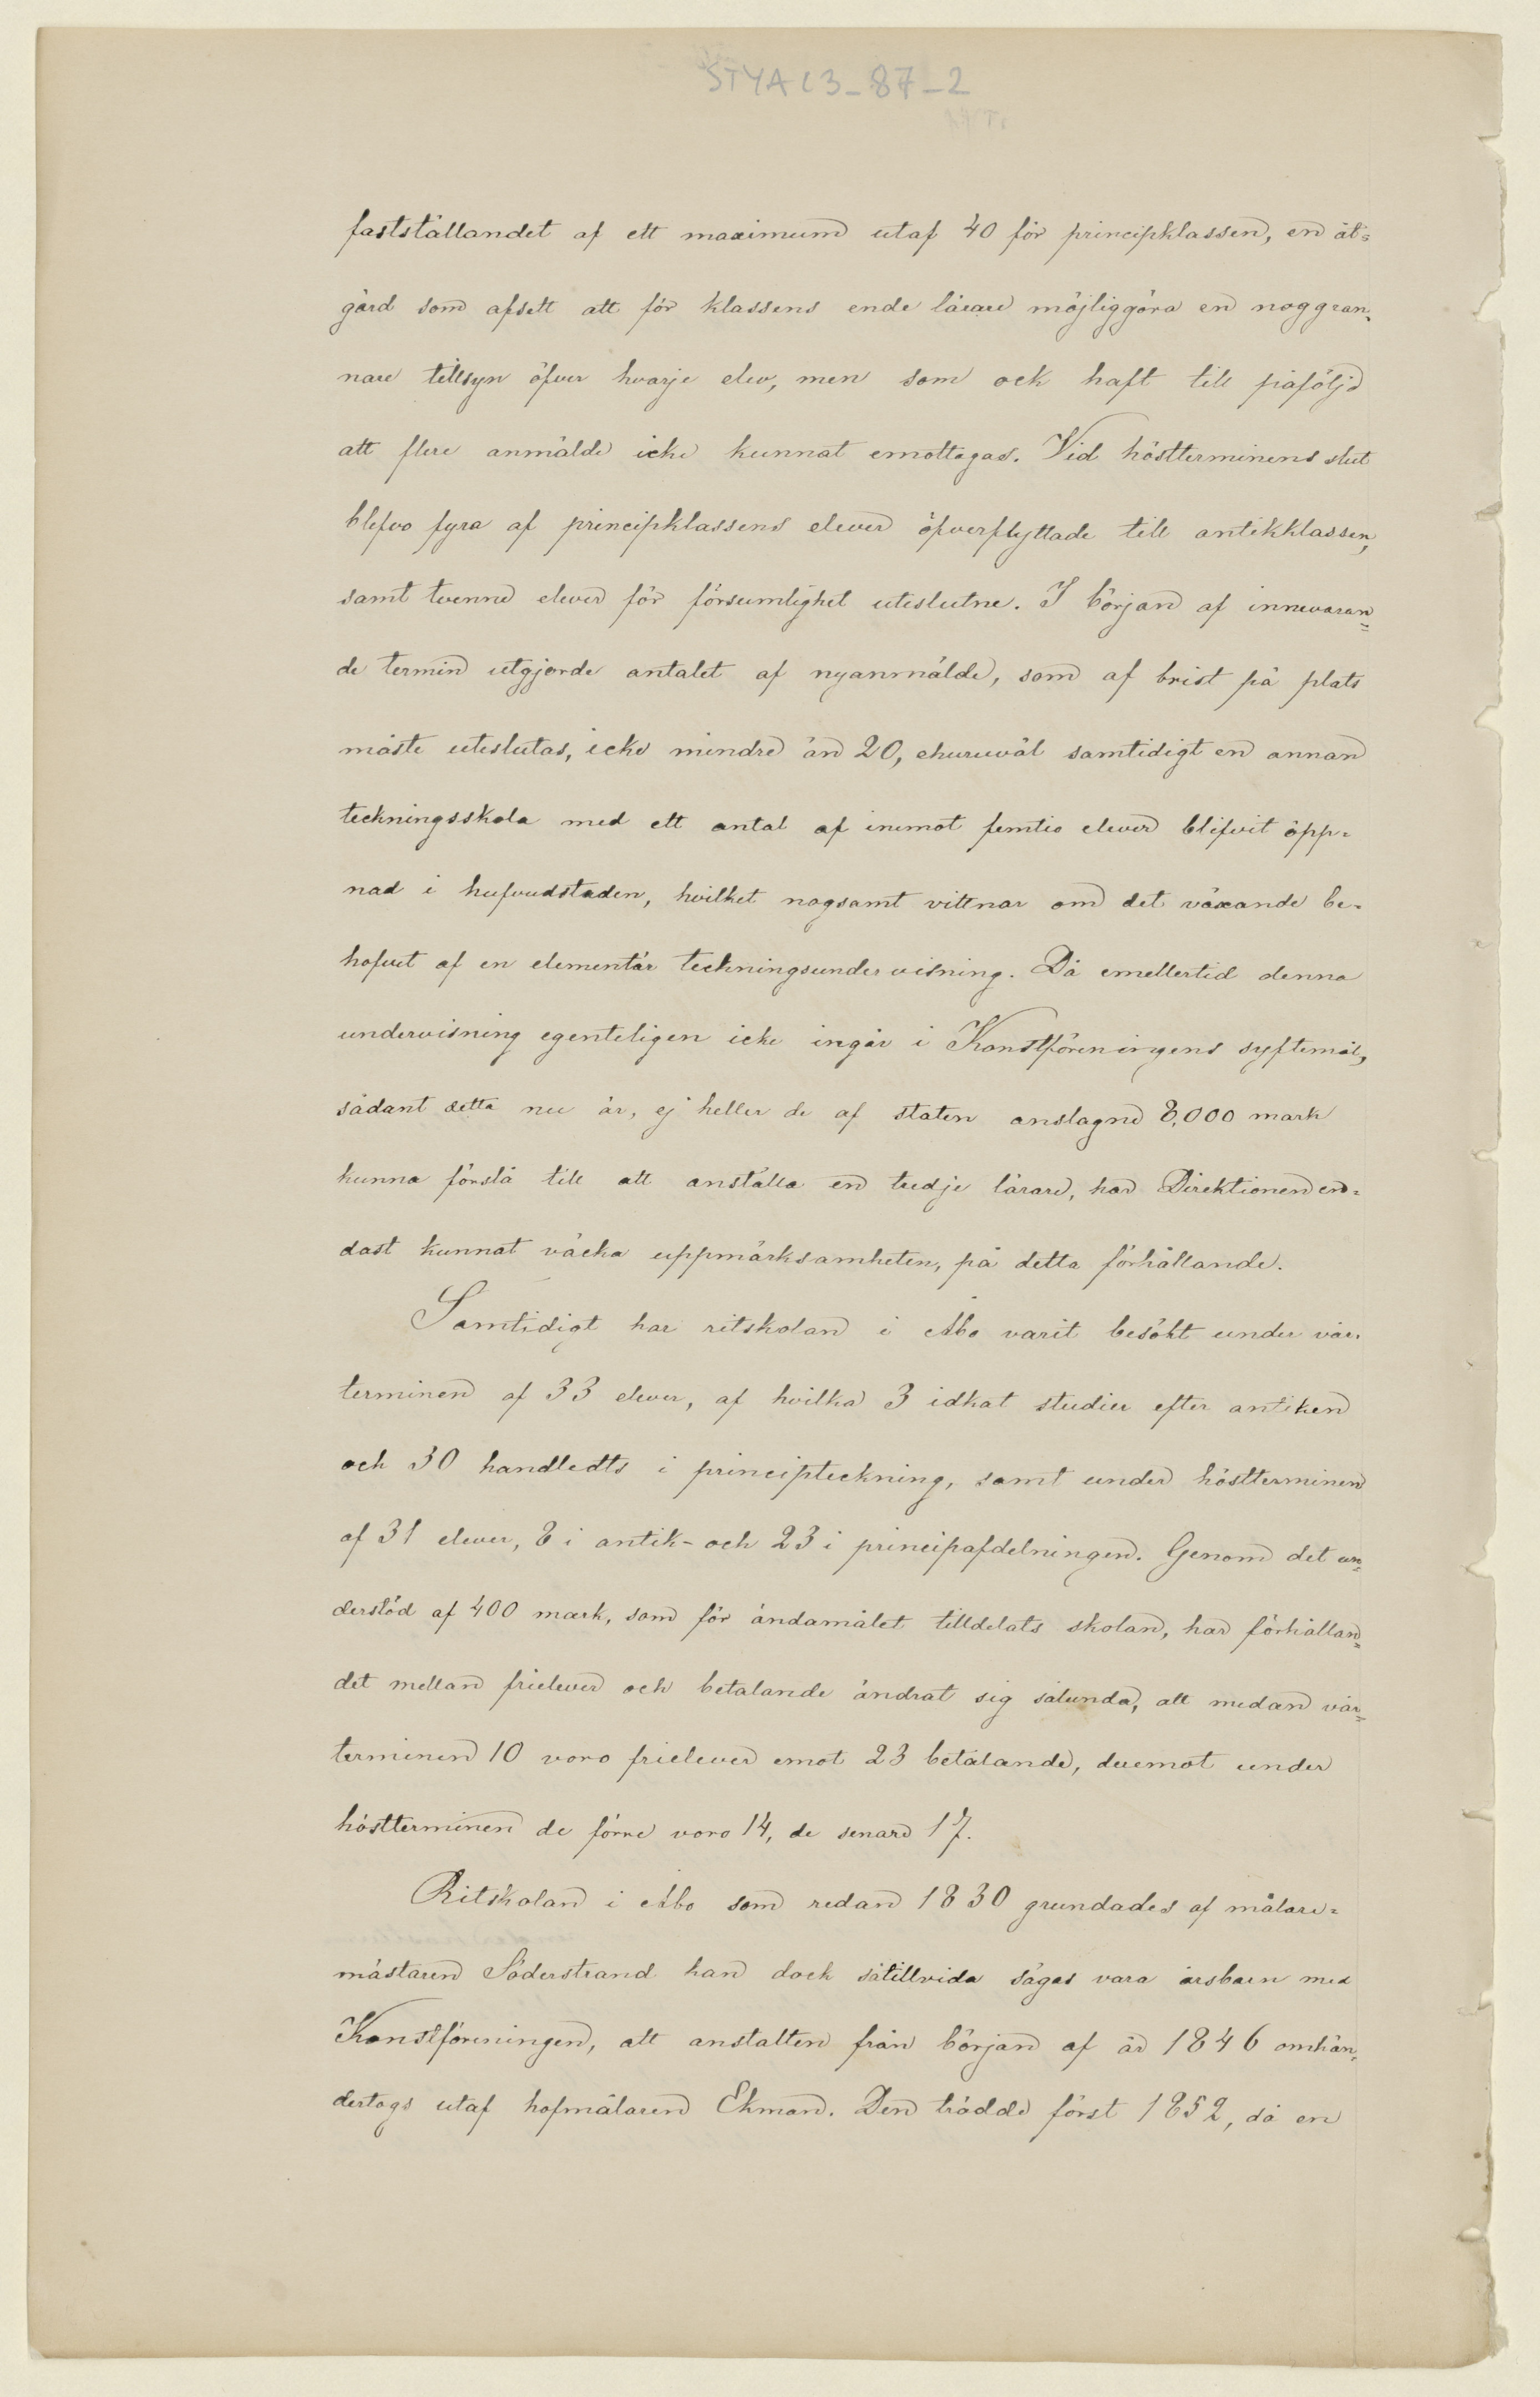 STYA C3_87_2
fastställandet af ett maximum utaf 40 för principklassen, en åt=
gärd som afsett att för klassens ende lärare möjliggöra en noggran=
nare tillsyn öfver hvarje elev, men som ock haft till påföljd
att flere anmälde icke kunnat emottagas. Vid höstterminens slut
blefvo fyra af principklassens elever öfverflyttade till antikklassen,
samt tvenne elever för försumlighet uteslutne. I början af innevaran=
de termin utgjorde antalet af nyanmälde, som af brist på plats
måste uteslutas, icke mindre än 20, ehuruväl samtidigt en annan
teckningsskola med ett antal af inemot femtio elever blifvit öpp=
nad i hufvudstaden, hvilket nogsamt vittnar om det växande be=
hofvet af en elementär teckningsundervisning. Då emellertid denna
undervisning egenteligen icke ingår i Konstföreningens syftemål,
sådant detta nu är, ej heller de af staten anslagne 8,000 mark
kunna förslå till att anställa en tredje lärare, har Direktionen en=
dast kunnat väcka uppmärksamheten, på detta förhållande.
Samtidigt har ritskolan i Åbo varit besökt under vår=
terminen af 33 elever, af hvilka 3 idkat studier efter antiken
och 30 handledts i principteckning, samt under höstterminen
af 31 elever, 8 i antik- och 23 i principafdelningen. Genom det un=
derstöd af 400 mark, som för ändamålet tilldelats skolan, har förhållan=
det mellan frielever och betalande ändrat sig sålunda, att medan vår=
terminen 10 voro frielever emot 23 betalande, deremot under
höstterminen de förre voro 14, de senare 17.
Ritskolan i Åbo som redan 1830 grundades af målare=
mästaren Söderstrand kan dock såtillvida sägas vara årsbarn med
Konstföreningen, att anstalten från början af år 1846 omhän=
dertogs utaf hofmålaren Ekman. Den trädde först 1852, då en